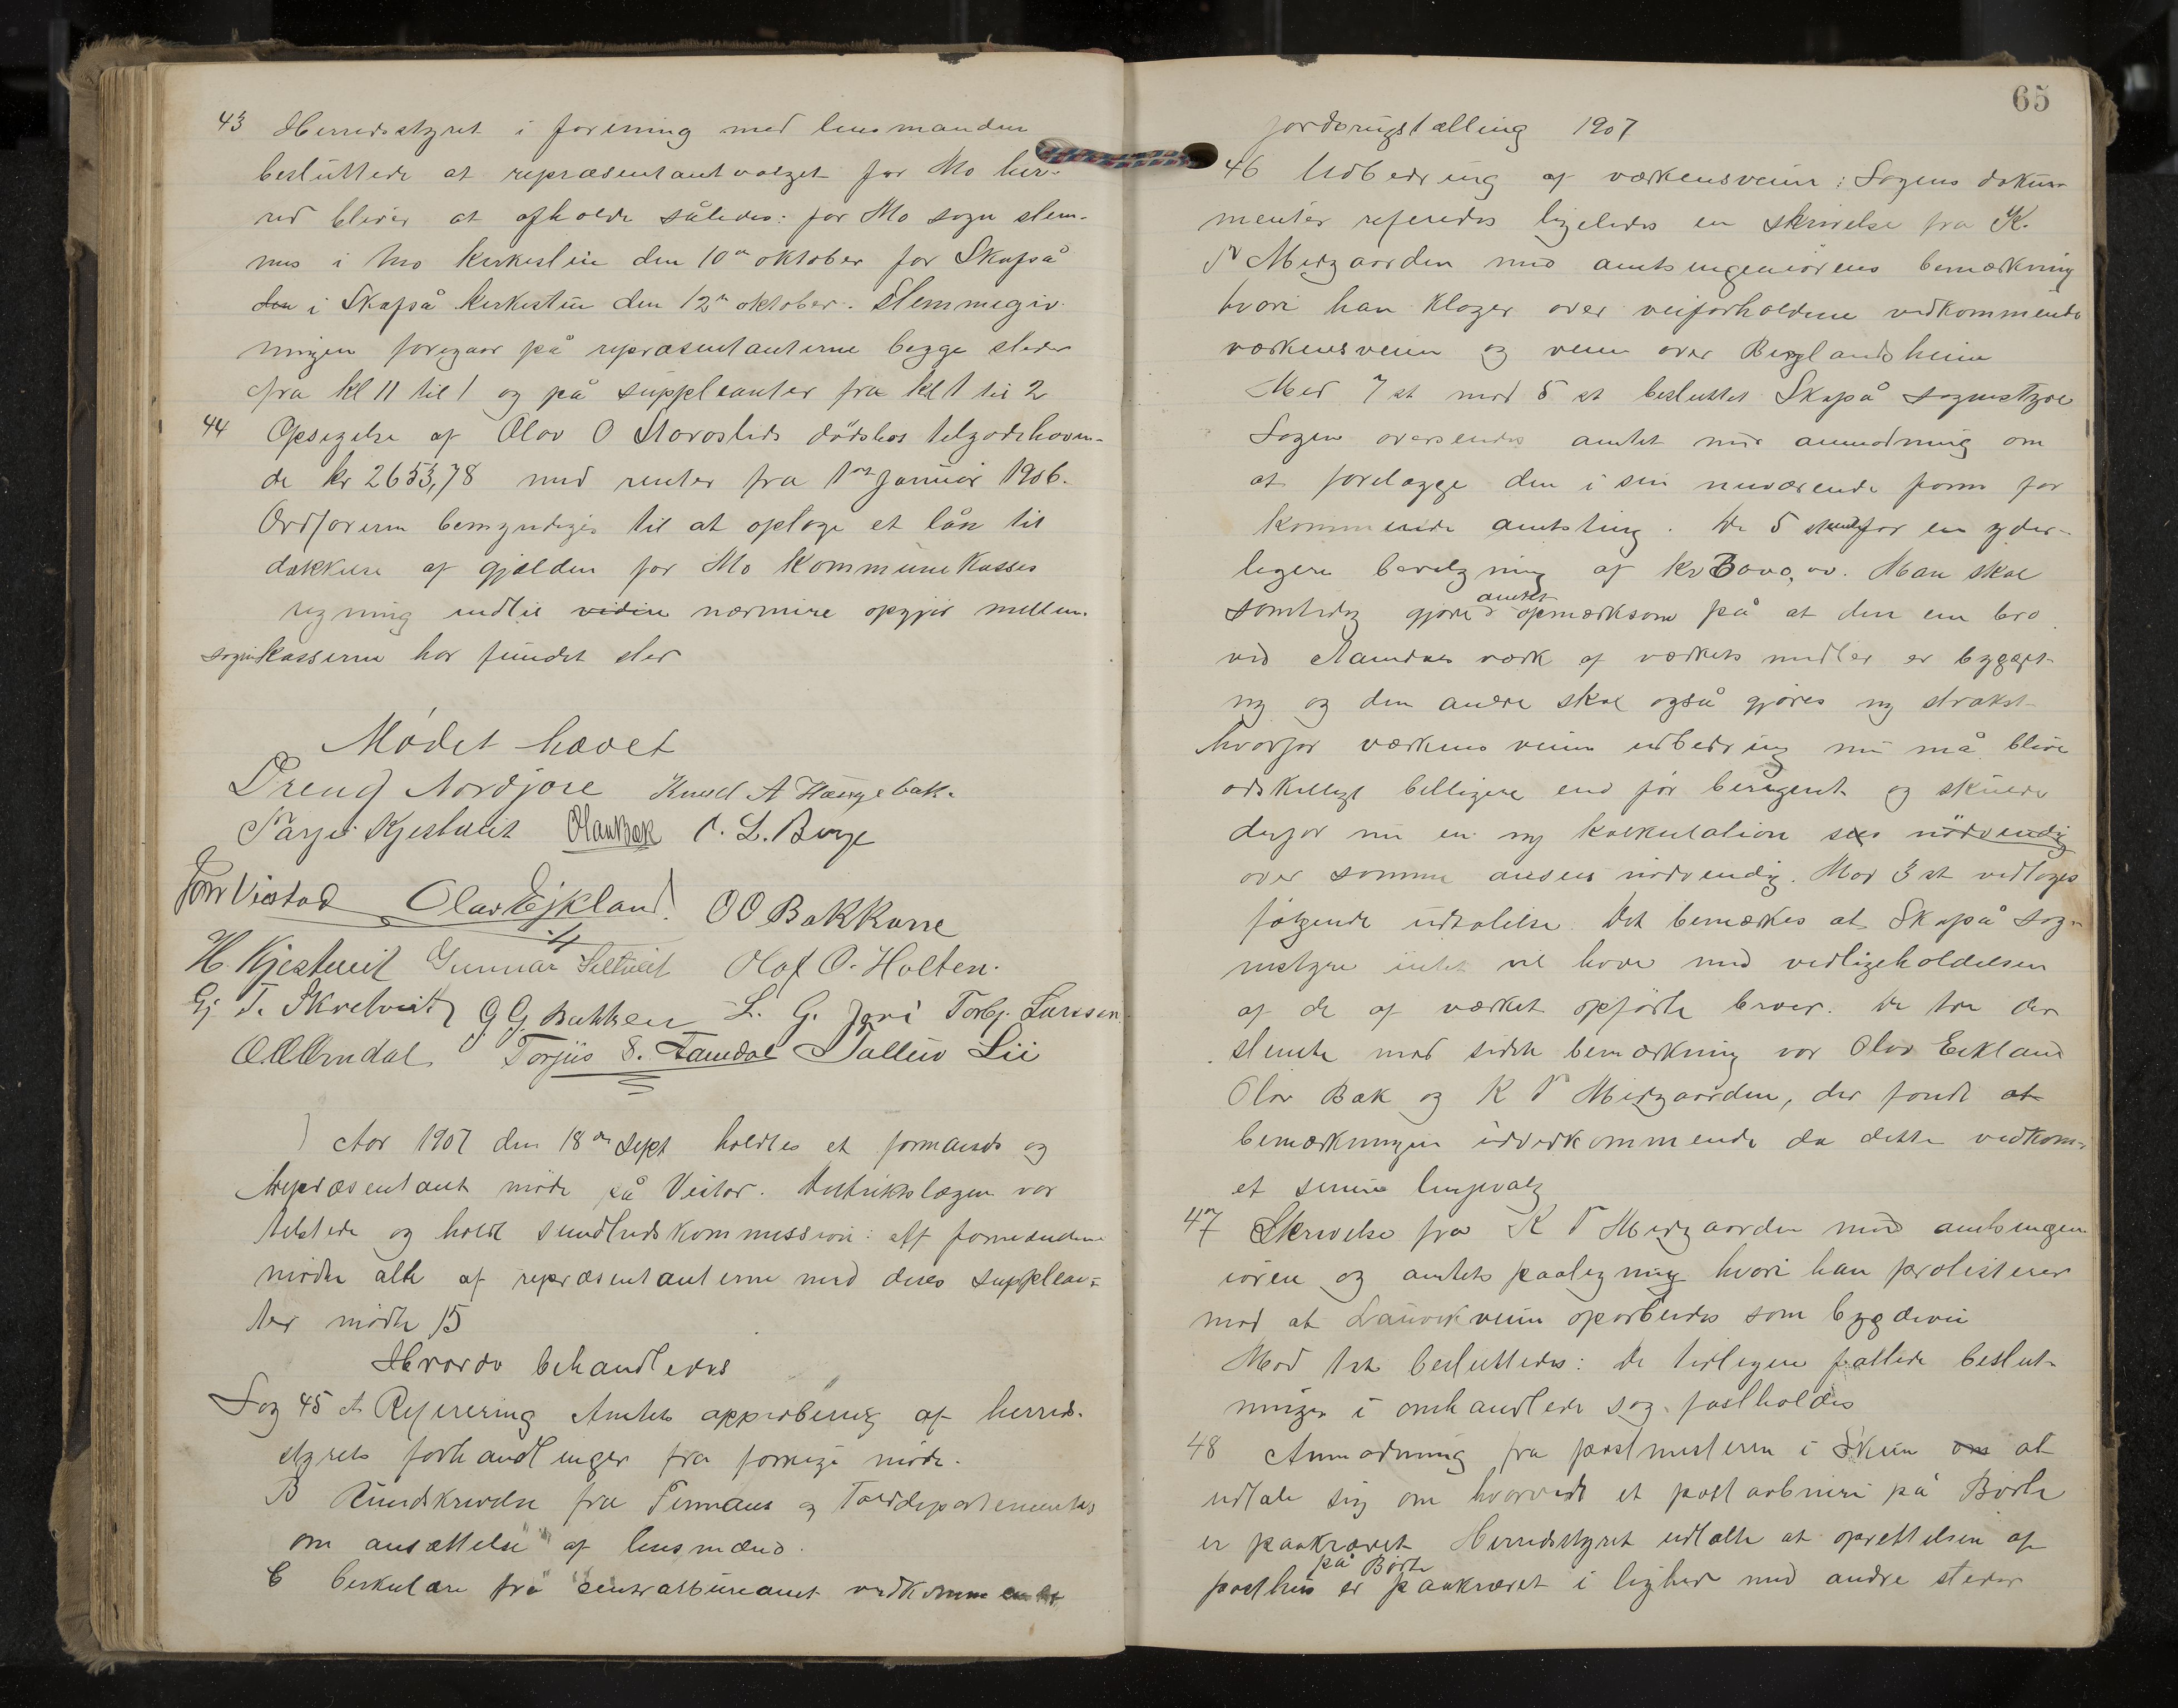 43 Herredsstyret i forening med lensmanden
besluttede at repræsentantvalget for Mo her-
red bliver at afholde således: for Mo sogn stem-
mes i Mo kirkestue den 10de oktober for Skafså
den i Skafså kirkestue den 12te oktober. Stemmegiv
ningen foregaar på repræsentanterne begge steder
fra kl 11 til 1 og på suppleanter fra kl 1 til 2
44 Opsigelse af Olav O dödsbos tilgodehaven-
de kr 2653,78 med renter fra 1ste Januar 1906.
Ordføreren bemyndiges til at optage et lån til
dækkelse af gjælden for Mo Kommunekasses
regning indtil videre nærmere opgjør mellem
sognekasserne har fundet sted
Mødet hævet
Dreng Nordjore Knud A Hauge bak.
Tarjei Kjestveit Olav Bæk L. Borge
Jon Vistad Olav Ejkland. O O Bakkane
H. Kjestveit Gunnar Olaf O. Holten.
Gj T. Skretveit G G. Bakken L. G. Jori Torbj. Larssen
O. O. Omdal Torjus S. Tamdal Tallev Lii
Aar 1907 den 18de Sept holdtes et formands og
repræsentant møde på Vistad. Distriktslægen var
tilstede og holdt sundhedskommission: Af formændene
mødte alle af repræsentanterne med deres supplean-
ter mødte 15
Hvorda behandledes
Sag 45 A Referering Amtets approbering af herreds-
styrets forhandlinger fra forrige møde.
B Rundskrivelse fra Finans og Tolddepartementet
om ansættelse af lensmænd.
C Cirkulære fra Centralbureauet vedkommende
65
jordbrugstælling 1907
46 Udbedring af værkensveien: Sagens doku-
menter refereredes ligeledes en skrivelse fra K.
T Midgaarden med amtsingeniörens bemærkning
hvori han klager over veiforholdene vedkommende
værkensveien og veien over Berglandsheien
Med 7 st mod 5 st besluttet Skafså sognestyre
Sagen oversendes amtet med anmodning om
at forelægge den i sin nuværende form for
kommende amtsting. De 5 stemte for en yder-
ligere bevilgning af kr 3000,00. Man skal
samtidig gjøre amtet opmærksom på at den ene bro
ved Aamdals værk af værkets midler er bygget
ny og den andre skal også gjøres ny strakst
hvorfor værkensveiens udbedring nu må blive
adskilligt billigere end før beregnet og skulde
derfor nu en ny kalkulation sees nödvendig
over samme ansees nødvendig. Mod 3 st vedtoges
følgende udtalelse. Det bemærkes at Skafså sog-
nestyre intet vil have med vedligeholdelsen
af de af værket opførte broer. De tre der
stemte mod sidste bemærkning var Olav Eikland
Olav Bæk og K T Midgaarden, der fandt at
bemærkningen uvedkommende da dette vedkom-
et senere
47 Skrivelse fra K T Midgaarden med amtsingen
iøren og amtets paategning hvori han protesterer
mod at Lauvikveien oparbeides som bygdevei
Mod 1 st besluttedes: De tidligere fattede beslut-
ninger i omhandlede sag fastholdes
48 Anmodning fra postmesteren i Skien om at
udtale sig om hvorvidt et postaabneri på Börte
er paakrævet Herredsstyret udtalte at oprettelsen af
posthus på Börte er paakrævet i lighed med andre steder